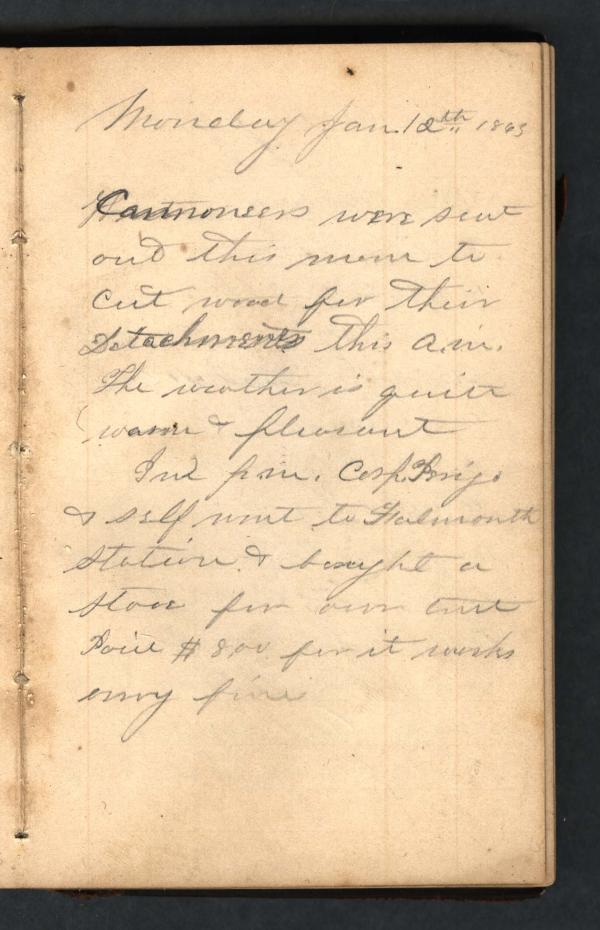 Monday Jan. 12th 1863
Cannoneers were sent
out this morn to
cut wood for their
Detachments this a.m.
The weather is quite
warm & pleasant
In p.m. Corp.
& self went to Falmouth
Station & bought a
stove for our tent
Paid $8.00 for it works
fine